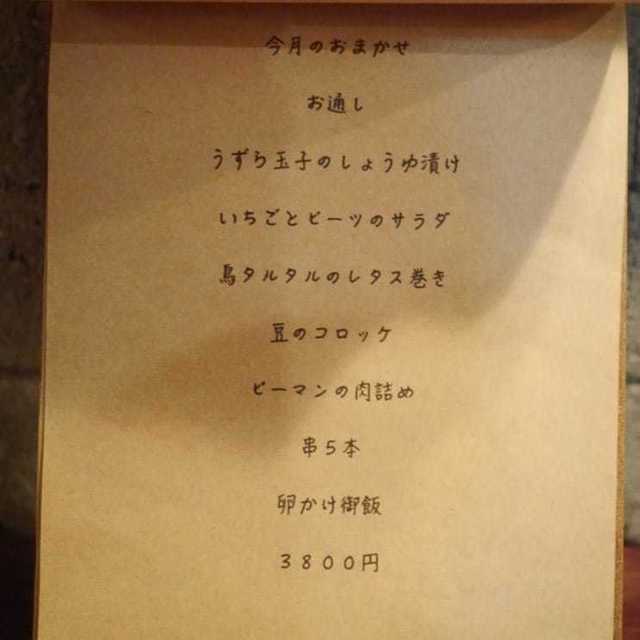 今月のおまかせ
お通し
うずら玉子のしょうゆ漬け
いちごとビーツのサラダ
鳥タルタルのレタス巻き
豆のコロッケ
ピーマンの肉詰め
串５本
卵かけ御飯
３８００円